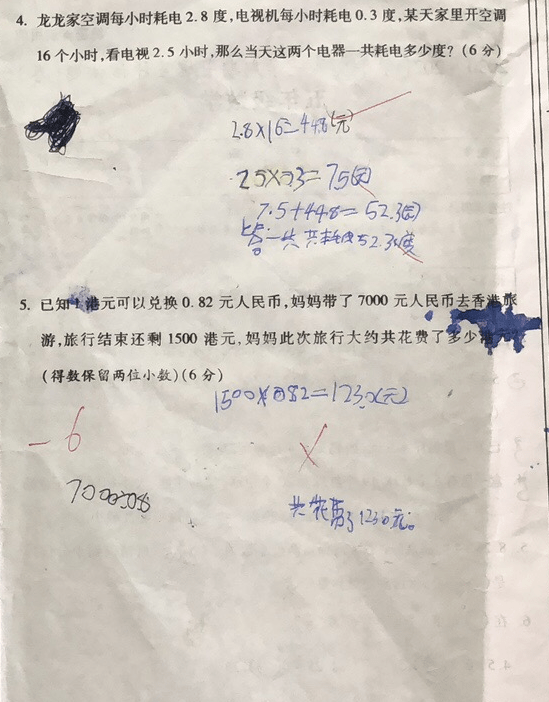 4. 龙龙家空调每小时耗电 2.8 度,电视机每小时耗电 0.3 度,某天家里开空调
16 个小时,看电视 2.5 小时,那么当天这两个电器一共耗电多少度?(6 分)
2.8×16=44.8(元)
2.5×0.3=7.5(元)
7.5+44.8=52.3(元)
答:一共共耗电52.3度
5. 已知 1 港元可以兑换 0.82 元人民币,妈妈带了 7000 元人民币去香港旅
游,旅行结束还剩 1500 港元,妈妈此次旅行大约共花费了多少
(得数保留两位小数)(6 分)
1500×0.82=1230(元)
-6
共花费了1230元。